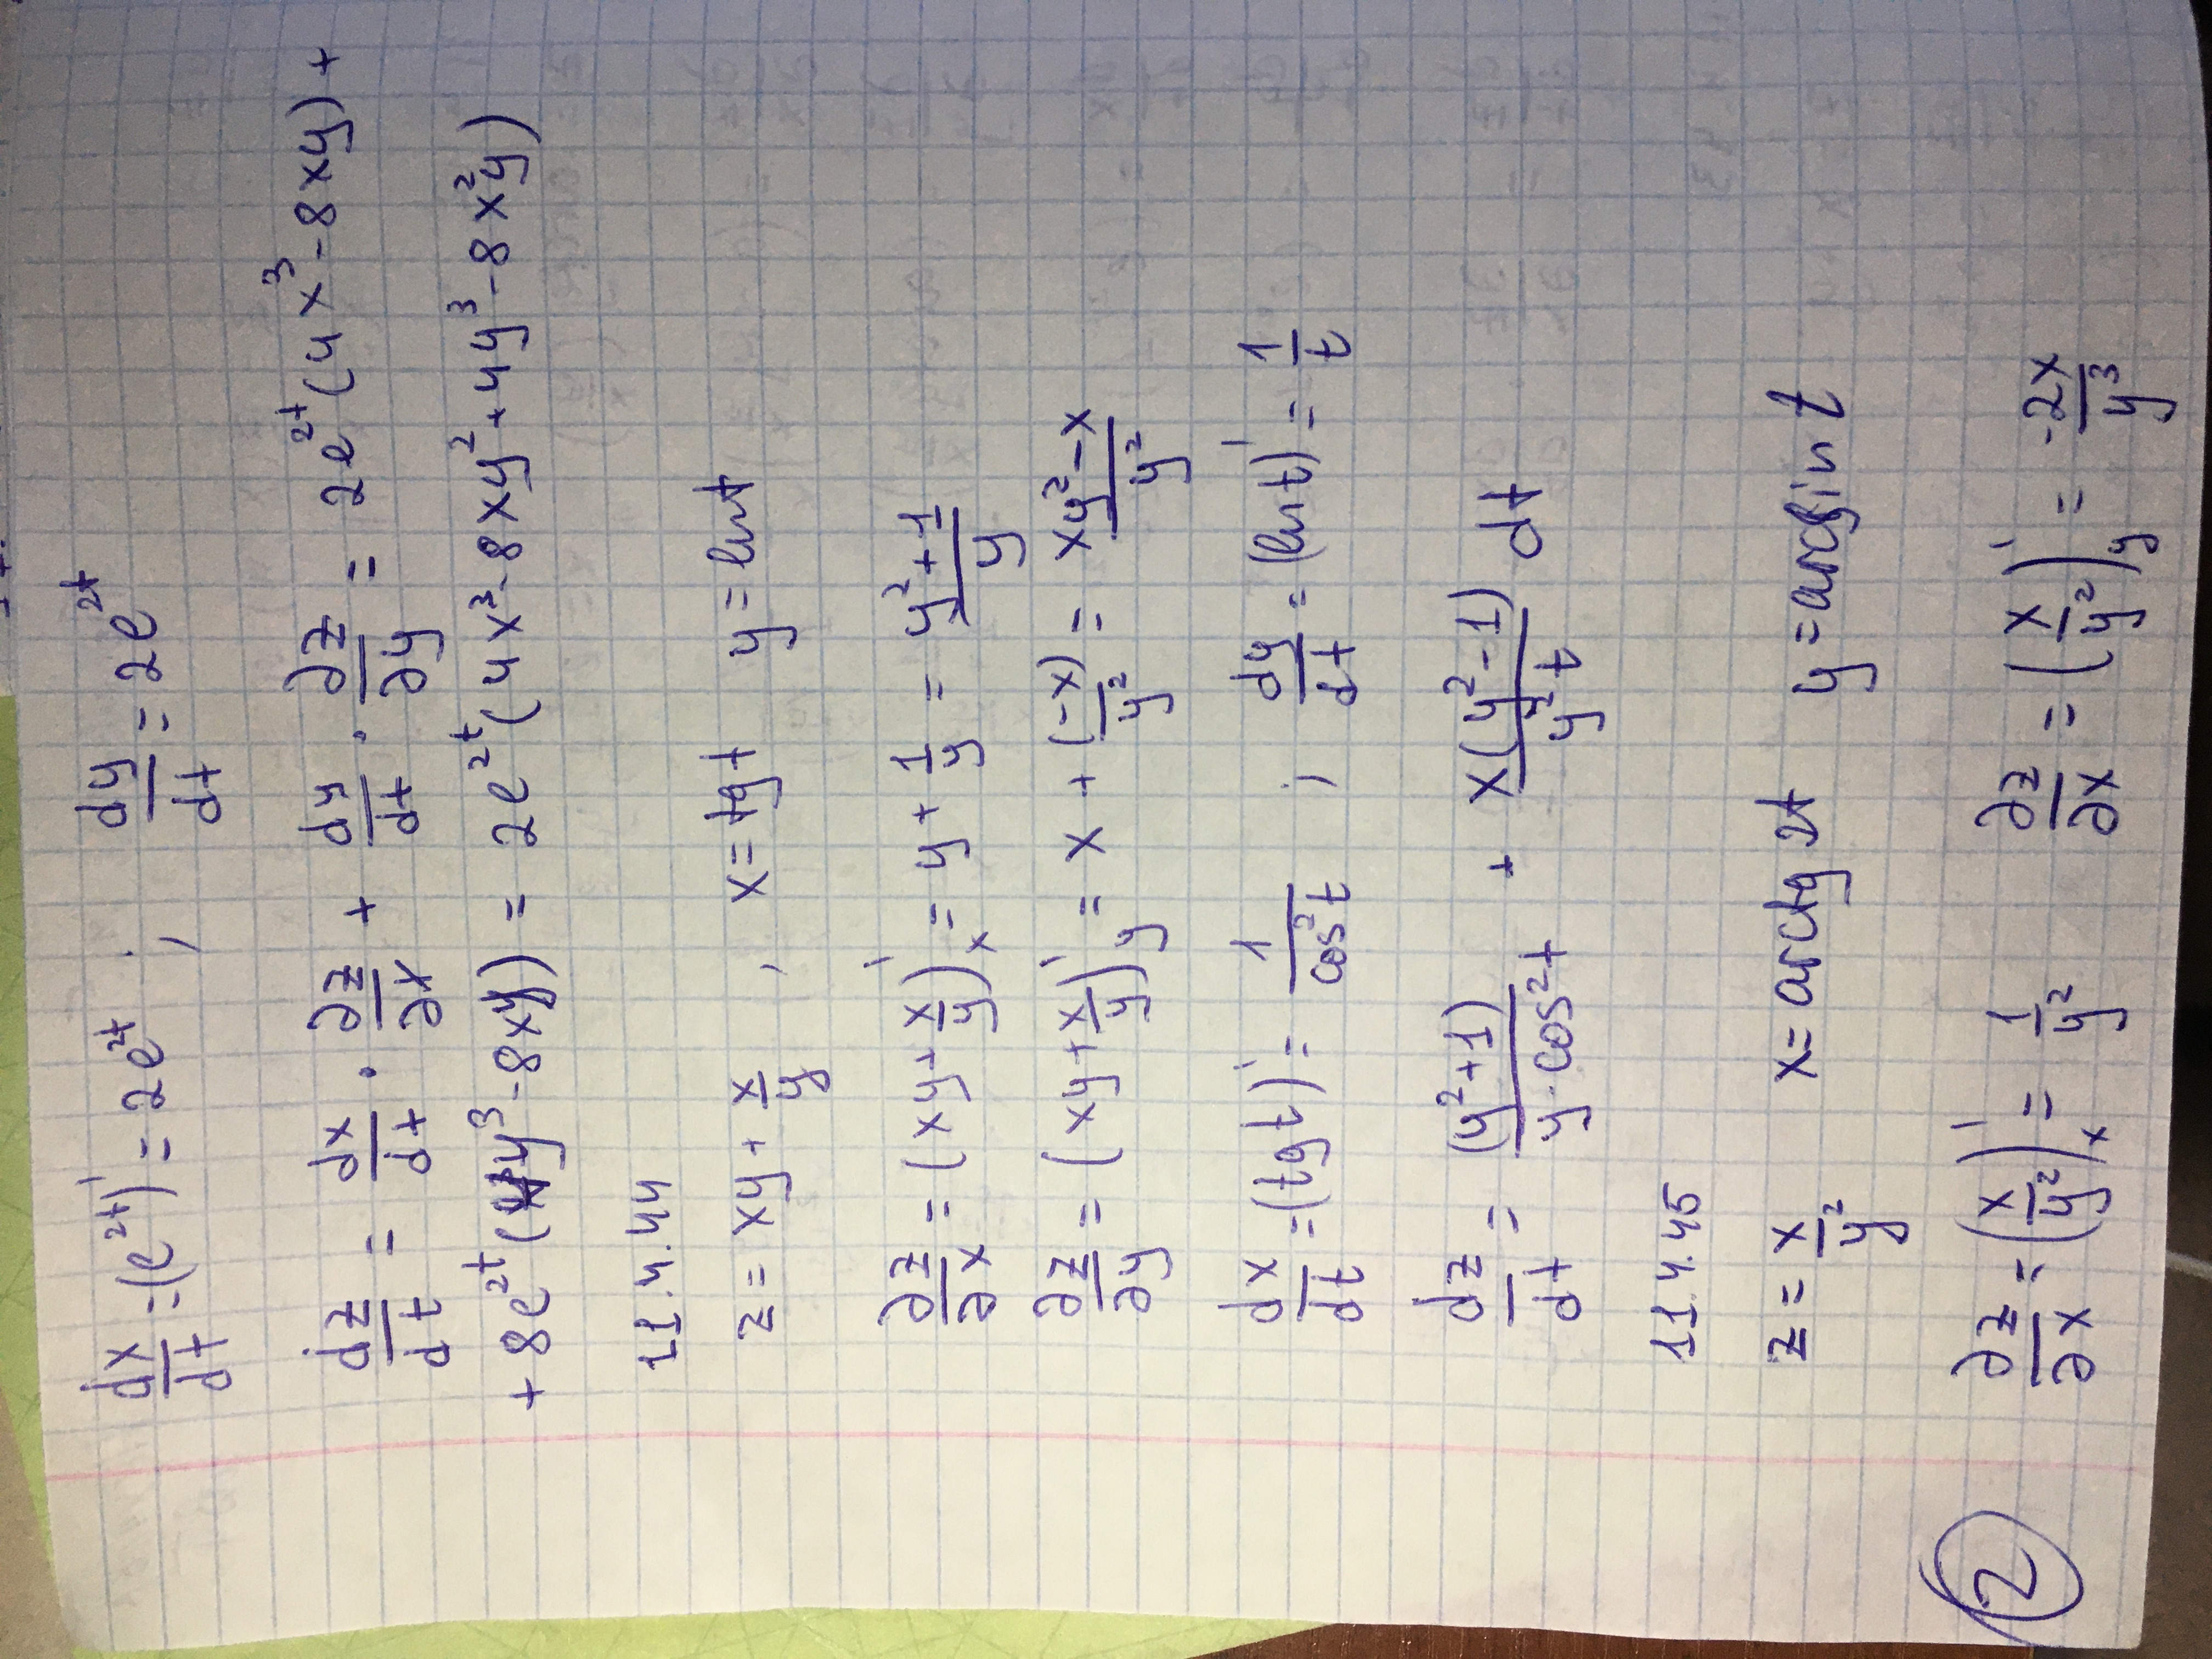 dx/dt = (e^{2t})' = 2e^{2t} ; dy/dt = 2e^{2t}
dz/dt = dx/dt · ∂z/∂x + dy/dt · ∂z/∂y = 2e^{2t}(4x^3 - 8xy) +
+ 8e^{2t}(4y^3 - 8xy) = 2e^{2t}(4x^3 - 8xy^2 + 4y^3 - 8x^2y)
11.4.44
z = xy + x/y , x = tg t y = ln t
∂z/∂x = (xy + x/y)'_x = y + 1/y = (y^2+1)/y
∂z/∂y = (xy + x/y)'_y = x + (-x)/y^2 = (xy^2 - x)/y^2
dx/dt = (tg t)' = 1/cos^2 t ; dy/dt = (ln t)' = 1/t
dz/dt = (y^2+1)/(y · cos^2 t) + x(y^2-1)/(y^2 t) dt
11.4.45
z = x/y^2 x = arctg 2t y = arcsin t
2 ∂z/∂x = (x/y^2)'_x = 1/y^2 ∂z/∂x = (x/y^2)'_y = -2x/y^3